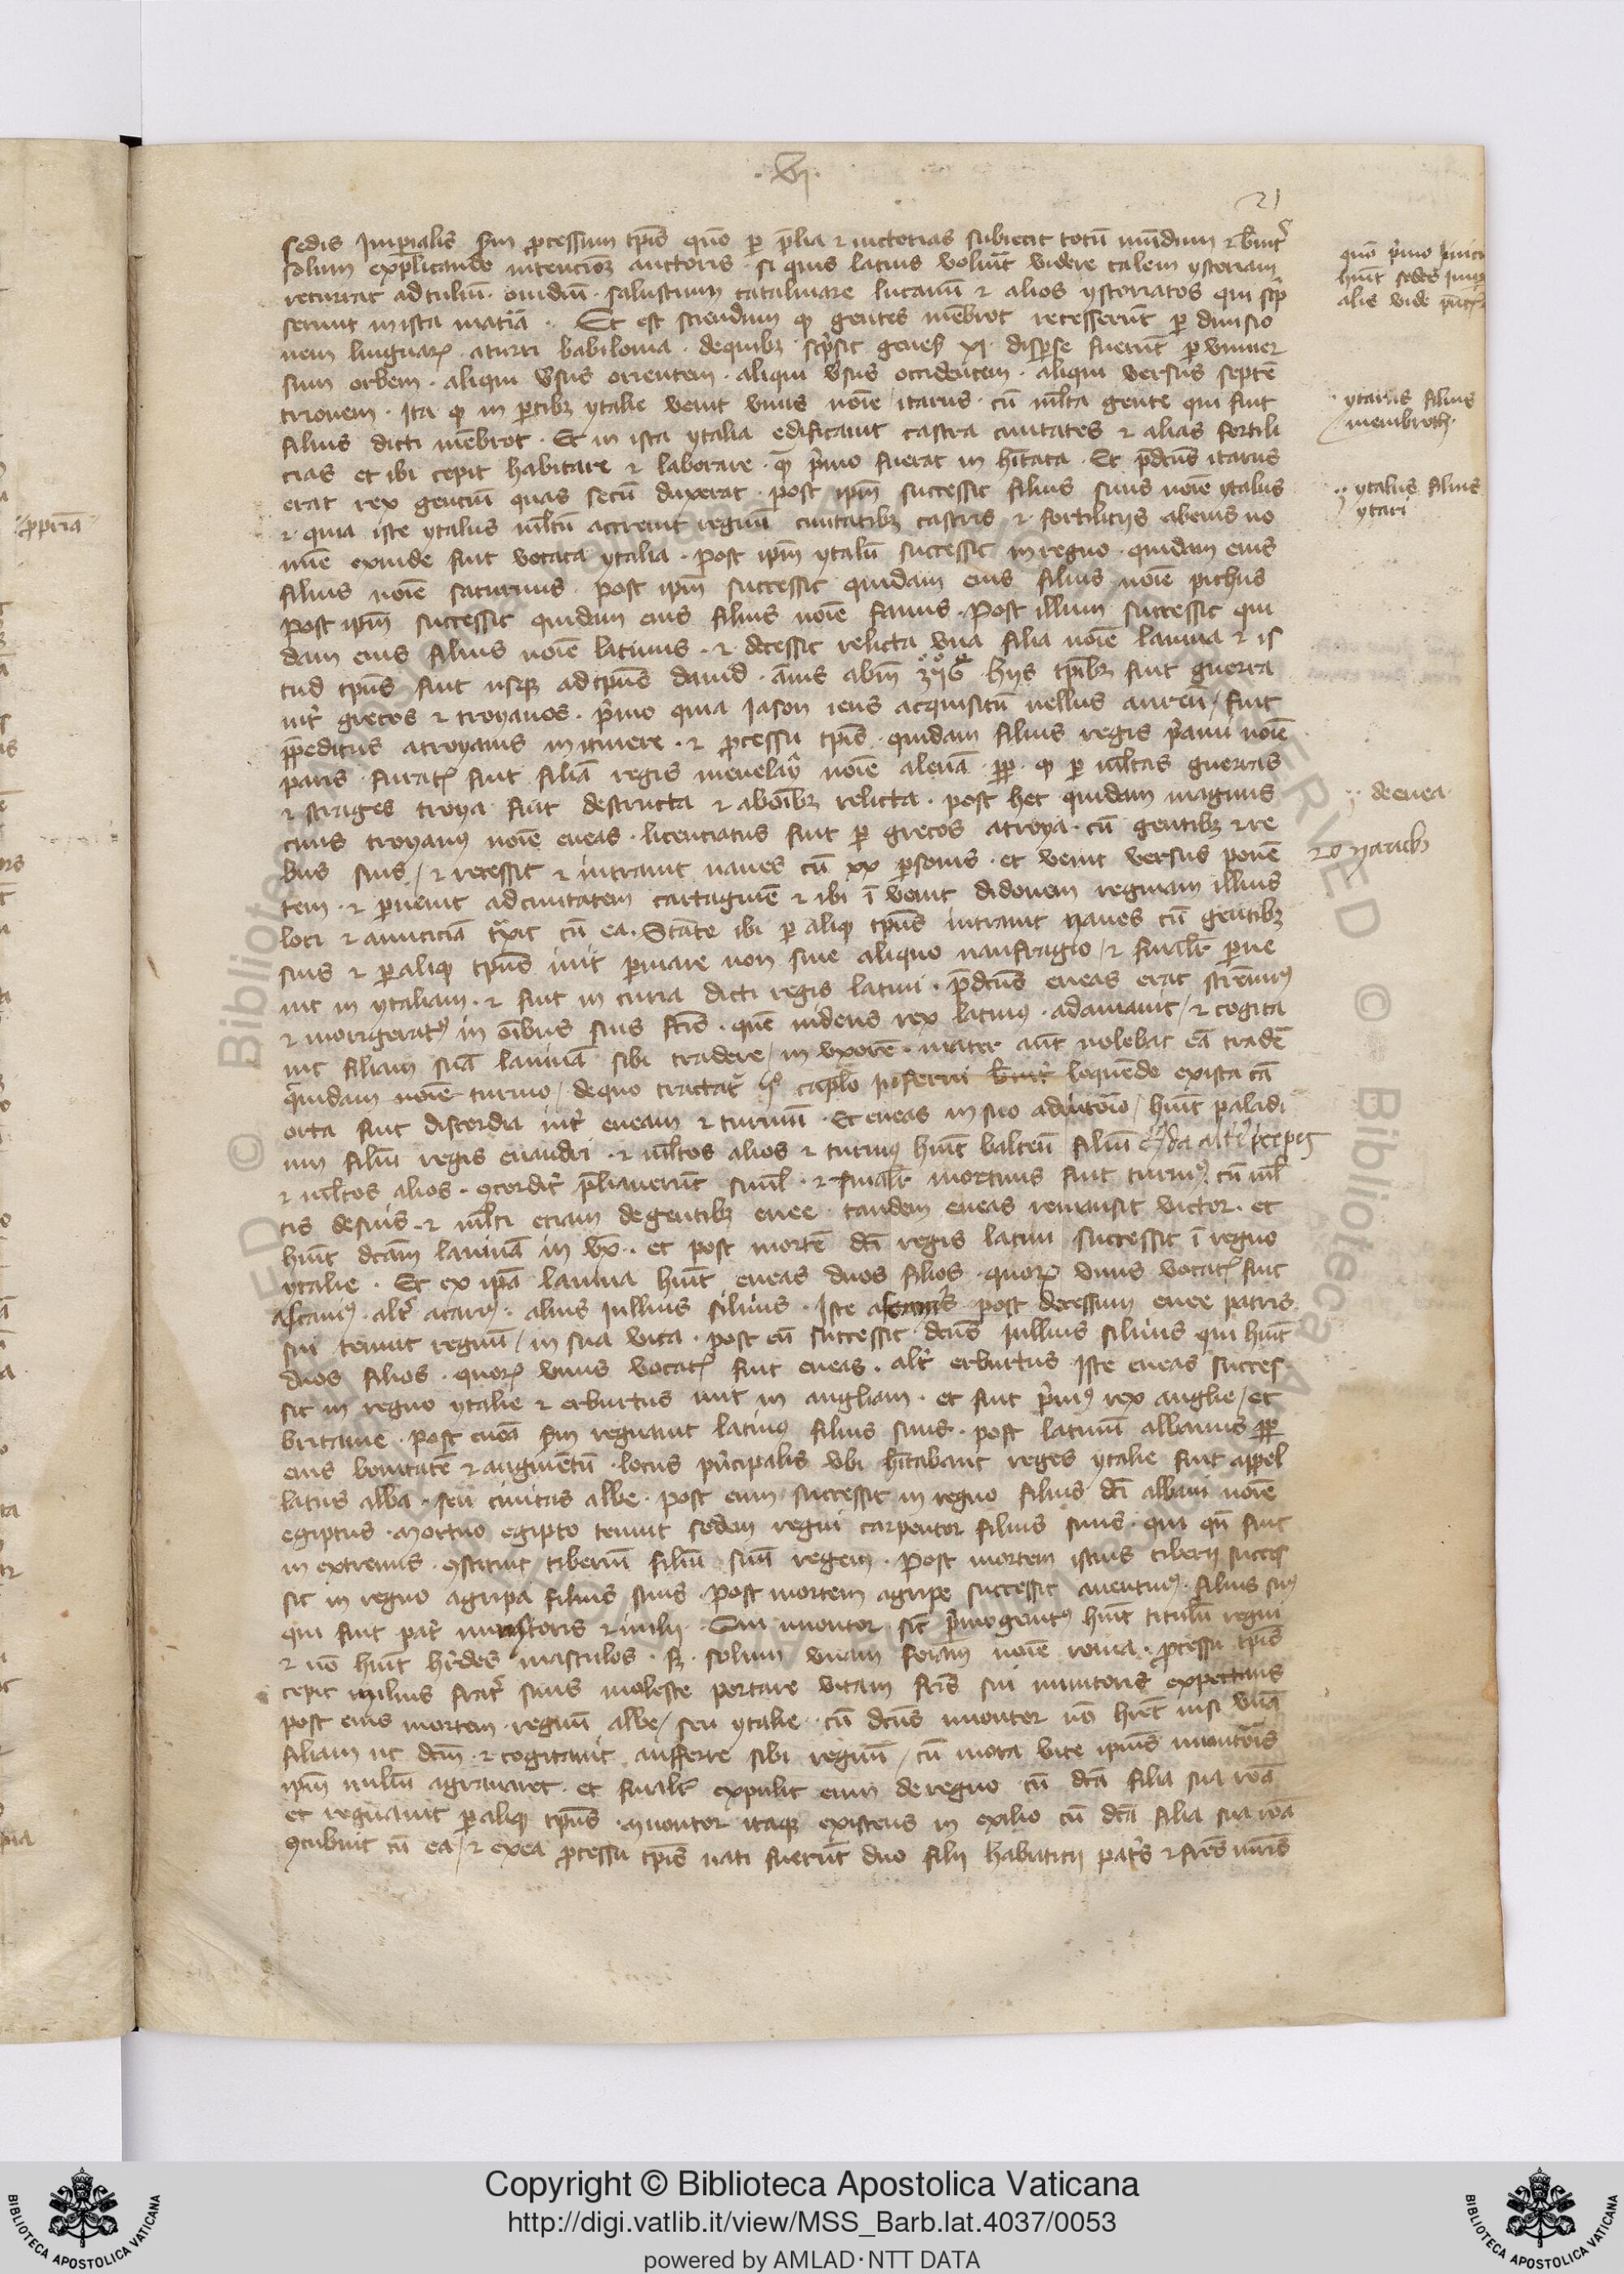 ·VI·
21
sedis Imperialis scdm pcessum tpis quo per plia et uictorias subiecit totu mundum et breuitr
solum explicando intencionem auctoris · si quis latius voluit videre talem ystoriam
recurrat ad tuliu · ouidiu · salustium catalinare lucanu et alios ystoriacos qui scrip
serunt in ista materia · Et est sciendum quod gentes nebrot recesserut per diuisio
nem linguarum a turri babilonia · de quibus scripsit genes xi · disperse fuerut per vniuer
sum orbem · aliqui versus orientem · aliqui versus occidentem · aliqui versus septe
trionem · Ita quod in partibus ytalie venit vnus noie itarus · cu mlta gente qui fuit
filius dicti nebrot · Et in ista ytalia edificauit castra ciuitates et alias fortili
cias et ibi cepit habitare et laborare · que primo fuerat inhitata · Et pdcus itarus
erat rex gentiu quas secu duxerat · post ipm successit filius suus noie ytalus
et quia iste ytalus mltu accreuit regnu ciuitatibus castris et fortiliciis ab eius no
mine exinde fuit vocata ytalia · post ipm ytalu successit in regno · quidam eius
filius noie saturnus · post ipm successit quidam eius filius noie pichus
post ipm successit quidam eius filius noie faunus · post illum successit qui
dam eius filius noie latinus · et decessit relicta vna filia noie lauina et is
tud tpus fuit usque ad tpus dauid · hiis tpibus fuit guerra
inter grecos et troyanos · primo quia Iason iens acquisitu uellus aureu / fuit
impeditus a troyanis in itinere · et pcessu tpis · quidam filius regis priami noie
paris · furatus fuit filia regis menelay noie alena · propter quod per mltas guerras
et strages troya fuit destructa et ab oibus relicta · post hec quidam magnus
ciuis troyanus noie eneas · licenciatus fuit per grecos a troya · cu gentibus et re
bus suis / et recessit et intrauit naues cu xx personis · et venit versus pone
tem · et peruenit ad ciuitatem cartagine et ibi inuenit didonem reginam illius
loci et amicicia traxit cu ea · Stante ibi per aliquod tpus intrauit naues cu gentibus
suis et per aliquod tpus iuit per mare non sine aliquo naufragio / et finaliter perue
nit in ytaliam · et fuit in curia dicti regis latini · pdcus eneas erat strenuus
et morigeratus in oibus suis fcis · que uidens rex latinus · adamauit / et cogita
uit filiam sua lauina sibi tradere / in vxore · mater aut nolebat ea trade
quidam noie turno / de quo tractatur caplo Inferni breuiter loquendo ex ista ca
orta fuit discordia inter eneam et turnum · Et eneas in suo adiutorio / huit paladi
um filiu regis euandri · et mltos alios et turnus huit
et mltos alios · concorditer pliauerut simul · et finaliter mortuus fuit turnus cu mul
tis de suis · et mlti etiam de gentibus enee · tandem eneas remansit victor · et
huit dcam lauina in vx · et post morte dci regis latini successit i regno
ytalie · Et ex ipa lauina huit eneas duos filios · quorum vnus vocatus fuit
ascanius · alter · alius Iullius siluius · Iste ascanius post decessum enee patris
sui tenuit regnu / in sua vita · post eu successit dcus Iullius siluius qui huit
duos filios · quorum vnus vocatus fuit eneas · alter erburtus Iste eneas succes
sit in regno ytalie et erburtus iuit in angliam · et fuit primus rex anglie / et
britanie · Post enea scdm regnauit latinus filius suus · post latinu albanus propter
eius bonitate et augmentu · locus principalis vbi hitabant reges ytalie fuit appel
latus alba · seu ciuitas albe · post eum successit in regno filius dci albani noie
egiptus · Mortuo egipto tenuit sedem regni carpentor filius suus · qui qn fuit
in extremis · constituit tiberiu filiu suu regem · Post mortem istius tiberii succes
sit in regno agripa filius suus · Post mortem agripe successit auentinus · filius suus
qui fuit pater numitoris et mulii · Qui numitor sicut primogenitus huit titulu regni
et no huit heredes masculos · set · solum vnam feiam noie roma · pcessu tpis
cepit mulius frater suus moleste portare vitam fris sui numitoris expectans
post eius mortem · regnu albe / seu ytalie · cu dcus numitor no hret nisi vna
filiam ut dcm · et cogitauit aufferre sibi regnu / cu mora vite ipius numitoris
ipm nimiu agrauaret · et finaliter expulit eum de regno cu dca filia sua roa
et regnauit per aliquod tpus · Numitor itaque existens in exilio cu dca filia sua roa
concubuit cu ea / et ex ea pcessu tpis nati fuerut duo filii habiti patris et fres mris
quo primo inici
huit sedes imper
alis vide
ytarus filius
membroth
ytalus filius
ytari
de enea
propria
Copyright © Biblioteca Apostolica Vaticana
http://digi.vatlib.it/view/MSS_Barb.lat.4037/0053
powered by AMLAD·NTT DATA
BIBLIOTECA APOSTOLICA VATICANA
BIBLIOTECA APOSTOLICA VATICANA